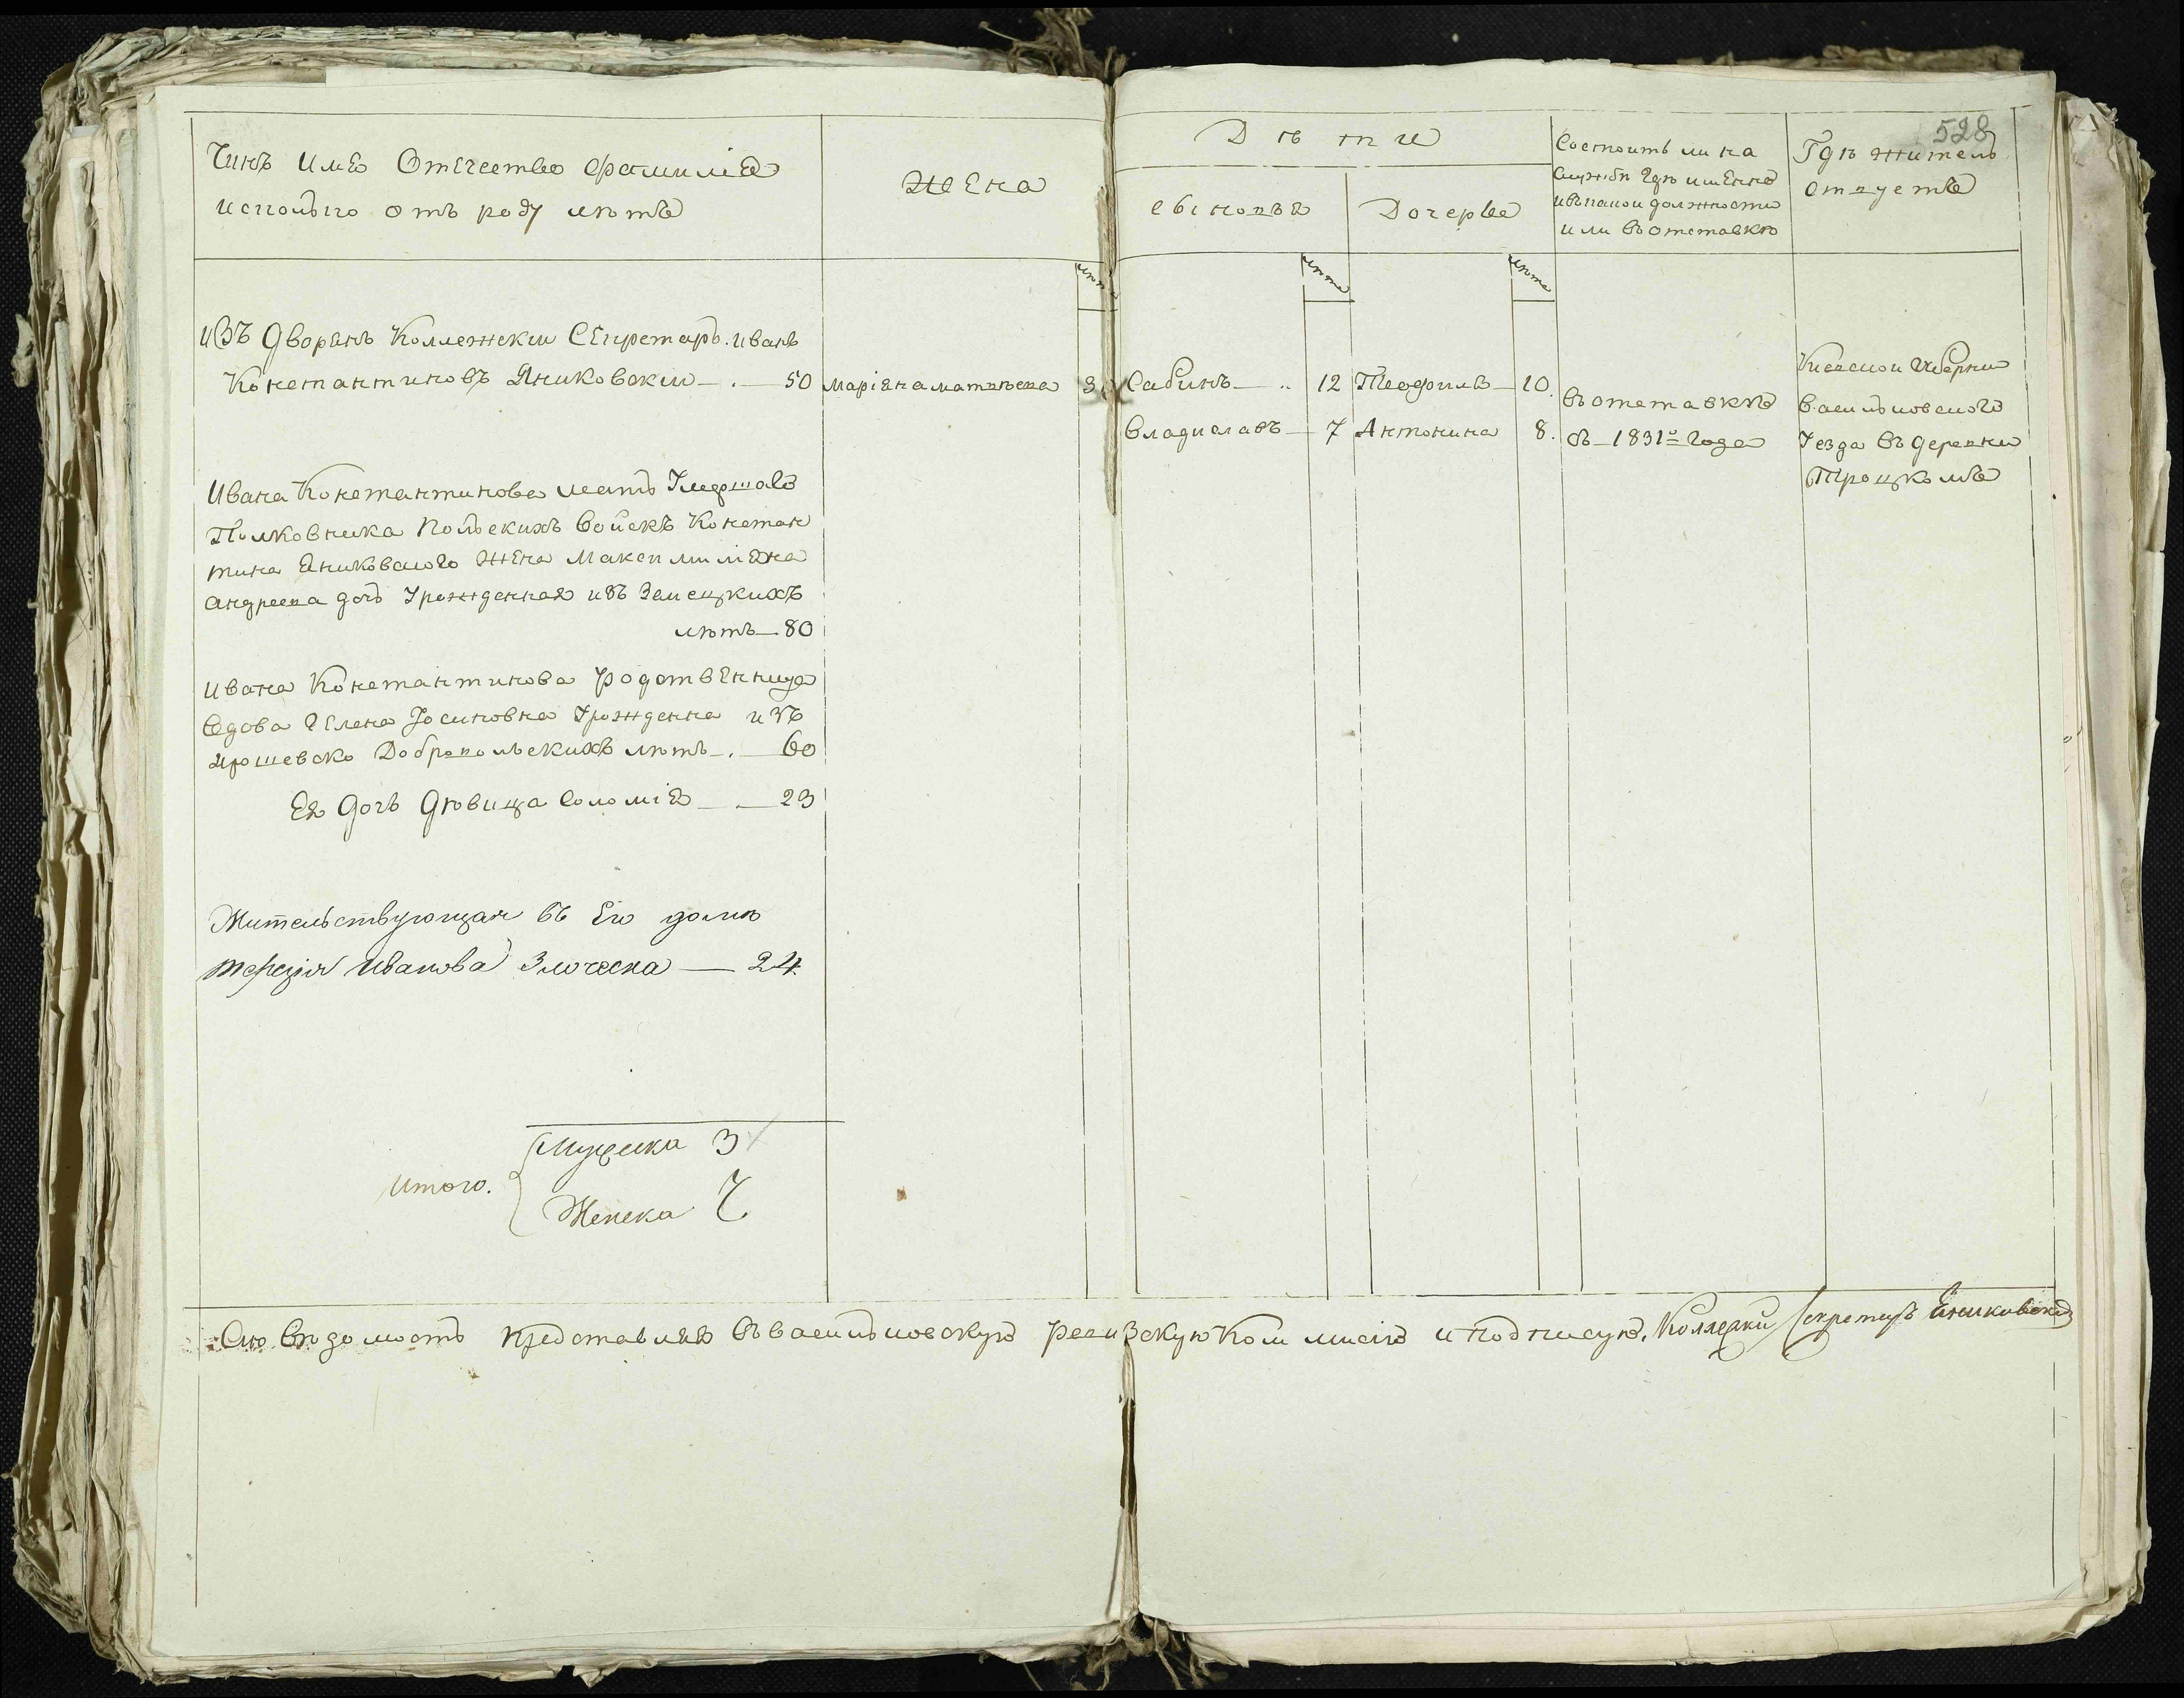 528
Чинъ Имя Отечество Фамилія
исколько отъ роду лѣтъ
Жена
Дѣти
Сыновья
Дочерьи
Состоитъ ли на
службѣ гдѣ именно
ивъкакои должности
или въотставкѣ
Гдѣ житель
ствуетъ
лѣта
лѣта
лѣта
изъ Дворянъ Коллежски Секретарь. иванъ
Константиновъ Яниковски — . — 50
Маріяна матвѣева
Сабинъ — .. 12
Теофила — 10.
Владиславъ — 7
Антонина 8.
въотставкѣ
съ 1831го года
Киевскои Губерни
васильковского
Уезда въ деревни
Троцкомъ
Ивана Константинова мать Умершаго
Полковника Польскихъ войскъ Констан
тина Яниковского жена Максимиліяна
андреева дочь Урожденная изъ Замецкихъ
лѣтъ — 80
Ивана Константинова родственница
вдова Елена Іосиповна Урожденна изъ
Ярошевско Добропольскихъ лѣтъ — . — 60
Ея дочь дѣвица Соломія — . — 23
Жительствующая въ Его домѣ
терезія Иванова — 24.
Итого.
Мужеска 3
Женска 7
Сию вѣдомость представляю въвасильковскую ревизскую Коммисію иподписую. Коллежски Секретарь Яниковски